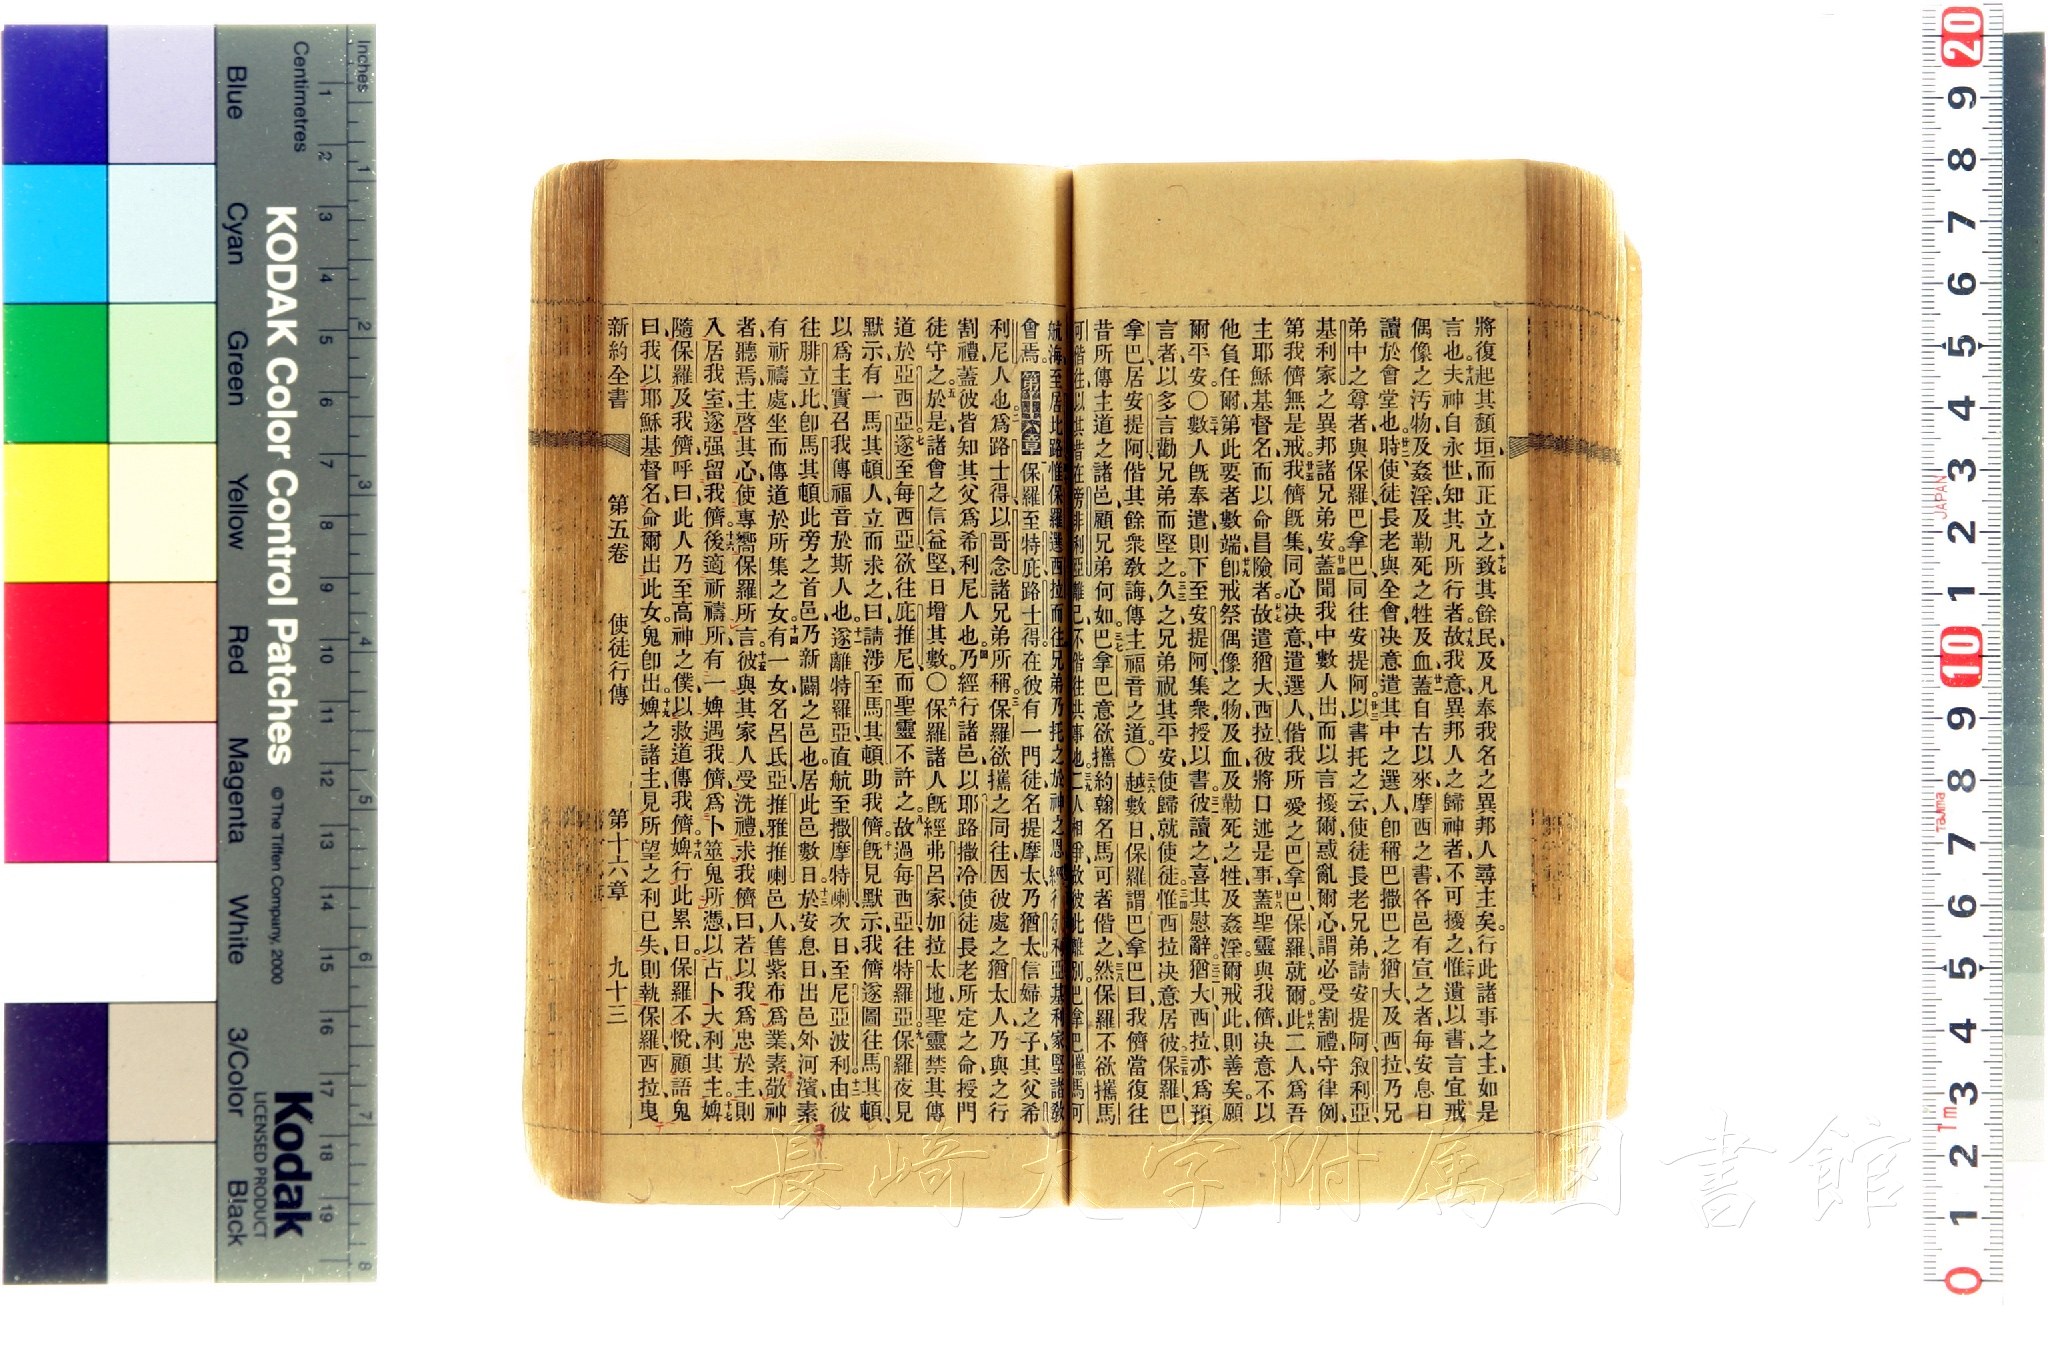 將復起其頹垣而正立之致其餘民及凡奉我名之異邦人尋主矣行此諸事之主如是
言也夫神自永世知其凡所行者故我意異邦人之歸神者不可擾之惟遺以書言宜戒
偶像之汚物及姦淫及勒死之牲及血蓋自古以來摩西之書各邑有宣之者每安息日
讀於會堂也時使徒長老與全會決意遣其中之選人卽稱巴撒巴之猶大及西拉乃兄
弟中之尊者與保羅巴拿巴同往安提阿以書托之云使徒長老兄弟請安提阿敘利亞
基利家之異邦諸兄弟安蓋聞我中數人出而以言擾爾惑亂爾心謂必受割禮守律例
第我儕無是戒我儕旣集同心決意遣選人偕我所愛之巴拿巴保羅就爾此二人爲吾
主耶穌基督名而以命昌險者故遣猶大西拉彼將口述是事蓋聖靈與我儕決意不以
他負任爾第此要者數端卽戒祭偶像之物及血及勒死之牲及姦淫爾戒此則善矣願
爾平安〇數人旣奉遣則下至安提阿集衆授以書彼讀之喜其慰辭猶大西拉亦爲預
言者以多言勸兄弟而堅之久之兄弟祝其平安使歸就使徒惟西拉決意居彼保羅巴
拿巴居安提阿偕其餘衆敎誨傳主福音之道〇越數日保羅謂巴拿巴曰我儕當復往
昔所傳主道之諸邑顧兄弟何如巴拿巴意欲攜約翰名馬可者偕之然保羅不欲攜馬
可偕往以其昔在旁非利亞離己不偕往共事也二人相爭故彼此離別巴拿巴攜馬可
航海至居比路惟保羅選西拉而往兄弟乃托之於神之恩經行敘利亞基利家堅諸敎
會焉 第十六章 保羅至特庇路士得在彼有一門徒名提摩太乃猶太信婦之子其父希
利尼人也爲路士得以哥念諸兄弟所稱保羅欲攜之同往因彼處之猶太人乃與之行
割禮蓋彼皆知其父爲希利尼人也乃經行諸邑以耶路撒冷使徒長老所定之命授門
徒守之於是諸會之信益堅日增其數〇保羅諸人旣經弗呂家加拉太地聖靈禁其傳
道於亞西亞遂至每西亞欲往庇推尼而聖靈不許之故過每西亞往特羅亞保羅夜見
默示有一馬其頓人立而求之曰請涉至馬其頓助我儕旣見默示我儕遂圖往馬其頓
以爲主實召我傳福音於斯人也遂離特羅亞直航至撒摩特喇次日至尼亞波利由彼
往腓立比卽馬其頓此旁之首邑乃新闢之邑也居此邑數日於安息日出邑外河濱素
有祈禱處坐而傳道於所集之女有一女名呂氐亞推雅推喇邑人售紫布爲業素敬神
者聽焉主啓其心使專嚮保羅所言彼與其家人受洗禮求我儕曰若以我爲忠於主則
入居我室遂强留我儕後適祈禱所有一婢遇我儕爲卜筮鬼所憑以占卜大利其主婢
隨保羅及我儕呼曰此人乃至高神之僕以救道傳我儕婢行此累日保羅不悅顧語鬼
曰我以耶穌基督名命爾出此女鬼卽出婢之諸主見所望之利已失則執保羅西拉曳
新約全書 第五卷 使徒行傳 第十六章 九十三
長崎大学附属図書館
Inches
Centimetres
KODAK Color Control Patches
© The Tiffen Company, 2000
Kodak
LICENSED PRODUCT
Blue Cyan Green Yellow Red Magenta White 3/Color Black
1 2 3 4 5 6 7 8 9 10 11 12 13 14 15 16 17 18 19
1 2 3 4 5 6 7 8
20 9 8 7 6 5 4 3 2 1 10 9 8 7 6 5 4 3 2 1 0
JAPAN
Tajima